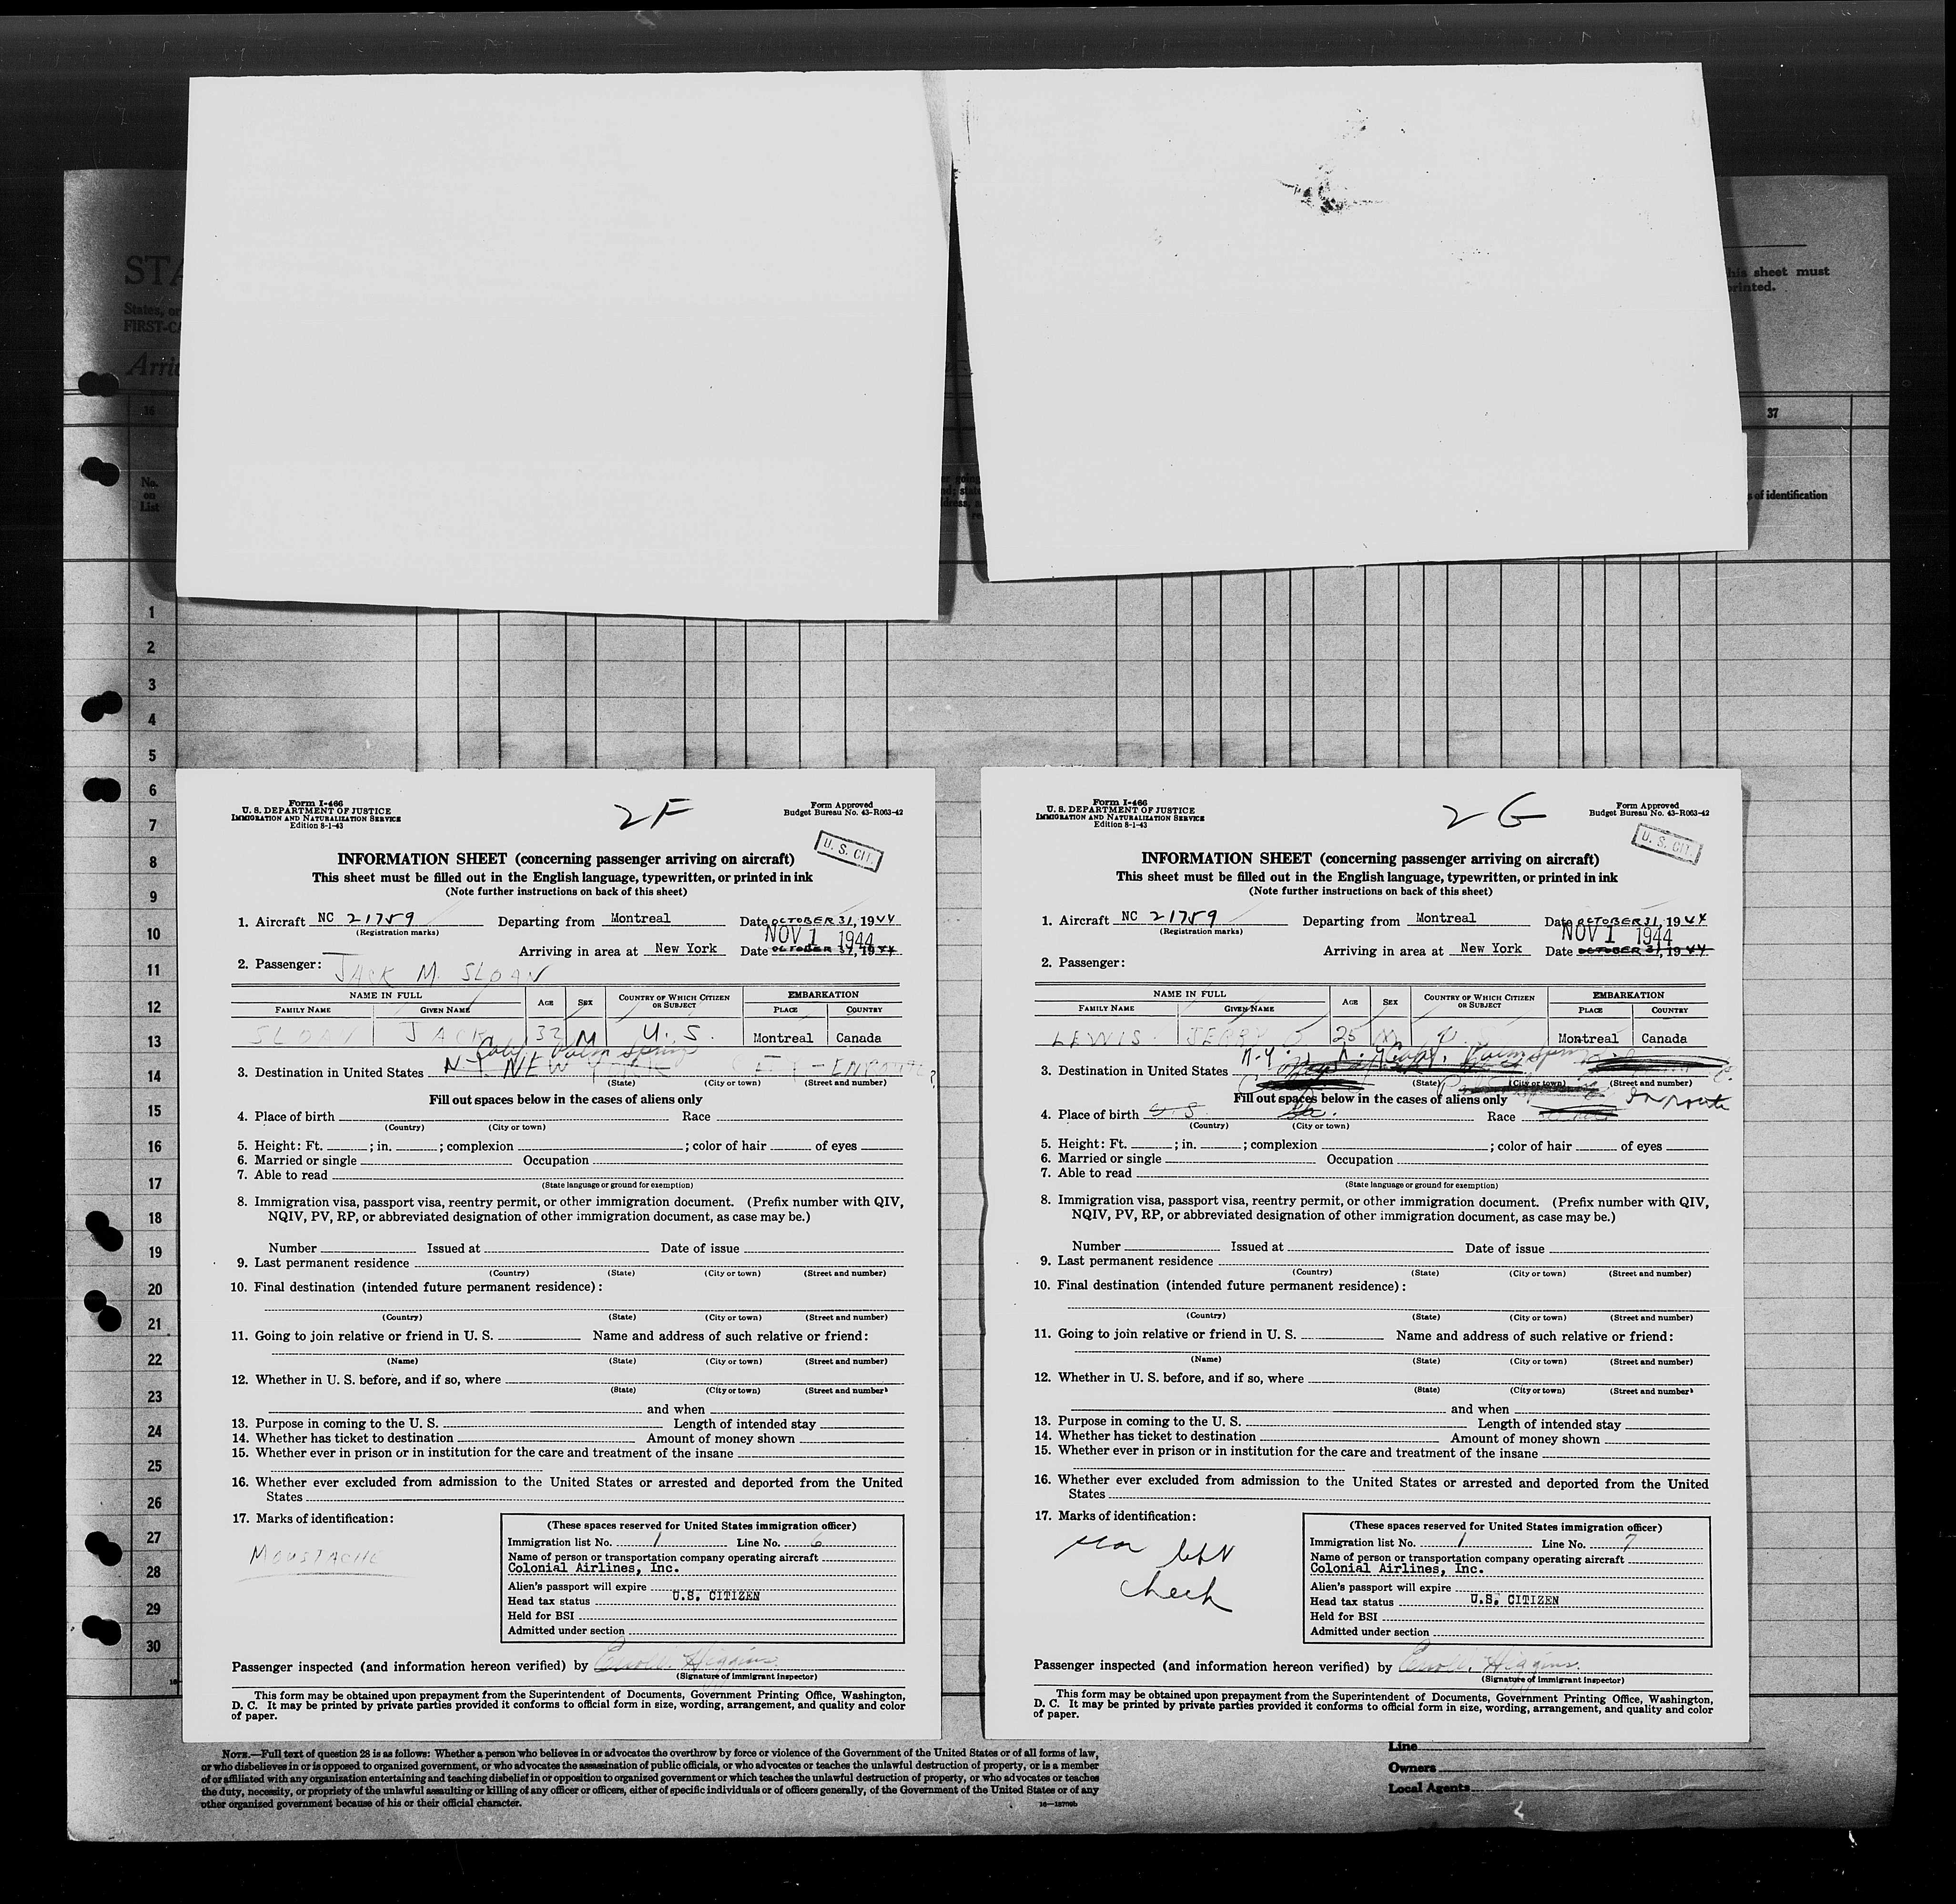 STA
States, or
FIRST-CA
his sheet must
printed.
37
No.
on
List
s of identification
1
2
3
4
5
6
7
8
9
10
11
12
13
14
15
16
17
18
19
20
21
22
23
24
25
26
27
28
29
30
Form I-466
U. S. DEPARTMENT OF JUSTICE
IMMIGRATION AND NATURALIZATION SERVICE
Edition 8-1-43
2F
Form Approved
Budget Bureau No. 43-R063-42
U. S. CIT.
INFORMATION SHEET (concerning passenger arriving on aircraft)
This sheet must be filled out in the English language, typewritten, or printed in ink
(Note further instructions on back of this sheet)
1. Aircraft NC 21759 Departing from Montreal Date OCTOBER 31, 1944
(Registration marks)
NOV 1 1944
Arriving in area at New York Date OCTOBER 31, 1944
2. Passenger: JACK M. SLOAN
NAME IN FULL AGE SEX COUNTRY OF WHICH CITIZEN OR SUBJECT EMBARKATION
FAMILY NAME GIVEN NAME PLACE COUNTRY
SLOAN JACK 32 M U.S. Montreal Canada
Calif Palm Springs
3. Destination in United States N.Y. NEW YORK
(State) (City or town) (Street and number)
Fill out spaces below in the cases of aliens only
4. Place of birth Race
(Country) (City or town)
5. Height: Ft. ; in. ; complexion ; color of hair of eyes
6. Married or single Occupation
7. Able to read
(State language or ground for exemption)
8. Immigration visa, passport visa, reentry permit, or other immigration document. (Prefix number with QIV,
NQIV, PV, RP, or abbreviated designation of other immigration document, as case may be.)
Number Issued at Date of issue
9. Last permanent residence
(Country) (State) (City or town) (Street and number)
10. Final destination (intended future permanent residence):
(Country) (State) (City or town) (Street and number)
11. Going to join relative or friend in U. S. Name and address of such relative or friend:
(Name) (State) (City or town) (Street and number)
12. Whether in U. S. before, and if so, where
(State) (City or town) (Street and number)
and when
13. Purpose in coming to the U. S. Length of intended stay
14. Whether has ticket to destination Amount of money shown
15. Whether ever in prison or in institution for the care and treatment of the insane
16. Whether ever excluded from admission to the United States or arrested and deported from the United
States
17. Marks of identification:
MOUSTACHE
(These spaces reserved for United States immigration officer)
Immigration list No. 1 Line No. 6
Name of person or transportation company operating aircraft
Colonial Airlines, Inc.
Alien's passport will expire
Head tax status U.S. CITIZEN
Held for BSI
Admitted under section
Passenger inspected (and information hereon verified) by Higgins
(Signature of immigrant inspector)
This form may be obtained upon prepayment from the Superintendent of Documents, Government Printing Office, Washington,
D. C. It may be printed by private parties provided it conforms to official form in size, wording, arrangement, and quality and color
of paper.
Form I-466
U. S. DEPARTMENT OF JUSTICE
IMMIGRATION AND NATURALIZATION SERVICE
Edition 8-1-43
2G
Form Approved
Budget Bureau No. 43-R063-42
U. S. CIT.
INFORMATION SHEET (concerning passenger arriving on aircraft)
This sheet must be filled out in the English language, typewritten, or printed in ink
(Note further instructions on back of this sheet)
1. Aircraft NC 21759 Departing from Montreal Date OCTOBER 31, 1944
(Registration marks)
NOV 1 1944
Arriving in area at New York Date OCTOBER 31, 1944
2. Passenger:
NAME IN FULL AGE SEX COUNTRY OF WHICH CITIZEN OR SUBJECT EMBARKATION
FAMILY NAME GIVEN NAME PLACE COUNTRY
LEWIS JERRY 25 M Montreal Canada
3. Destination in United States N.Y. N.Y. Calif. Palm Springs
(State) (City or town) (Street and number)
Fill out spaces below in the cases of aliens only Enroute
4. Place of birth U.S. Race
(Country) (City or town)
5. Height: Ft. ; in. ; complexion ; color of hair of eyes
6. Married or single Occupation
7. Able to read
(State language or ground for exemption)
8. Immigration visa, passport visa, reentry permit, or other immigration document. (Prefix number with QIV,
NQIV, PV, RP, or abbreviated designation of other immigration document, as case may be.)
Number Issued at Date of issue
9. Last permanent residence
(Country) (State) (City or town) (Street and number)
10. Final destination (intended future permanent residence):
(Country) (State) (City or town) (Street and number)
11. Going to join relative or friend in U. S. Name and address of such relative or friend:
(Name) (State) (City or town) (Street and number)
12. Whether in U. S. before, and if so, where
(State) (City or town) (Street and number)
and when
13. Purpose in coming to the U. S. Length of intended stay
14. Whether has ticket to destination Amount of money shown
15. Whether ever in prison or in institution for the care and treatment of the insane
16. Whether ever excluded from admission to the United States or arrested and deported from the United
States
17. Marks of identification:
left
cheek
(These spaces reserved for United States immigration officer)
Immigration list No. 1 Line No. 7
Name of person or transportation company operating aircraft
Colonial Airlines, Inc.
Alien's passport will expire
Head tax status U.S. CITIZEN
Held for BSI
Admitted under section
Passenger inspected (and information hereon verified) by Higgins
(Signature of immigrant inspector)
This form may be obtained upon prepayment from the Superintendent of Documents, Government Printing Office, Washington,
D. C. It may be printed by private parties provided it conforms to official form in size, wording, arrangement, and quality and color
of paper.
NOTE.—Full text of question 28 is as follows: Whether a person who believes in or advocates the overthrow by force or violence of the Government of the United States or of all forms of law,
or who disbelieves in or is opposed to organized government, or who advocates the assassination of public officials, or who advocates or teaches the unlawful destruction of property, or is a member
of or affiliated with any organization entertaining and teaching disbelief in or opposition to organized government or which teaches the unlawful destruction of property, or who advocates or teaches
the duty, necessity, or propriety of the unlawful assaulting or killing of any officer or officers, either of specific individuals or of officers generally, of the Government of the United States or of any
other organized government because of his or their official character.
Line
Owners
Local Agents